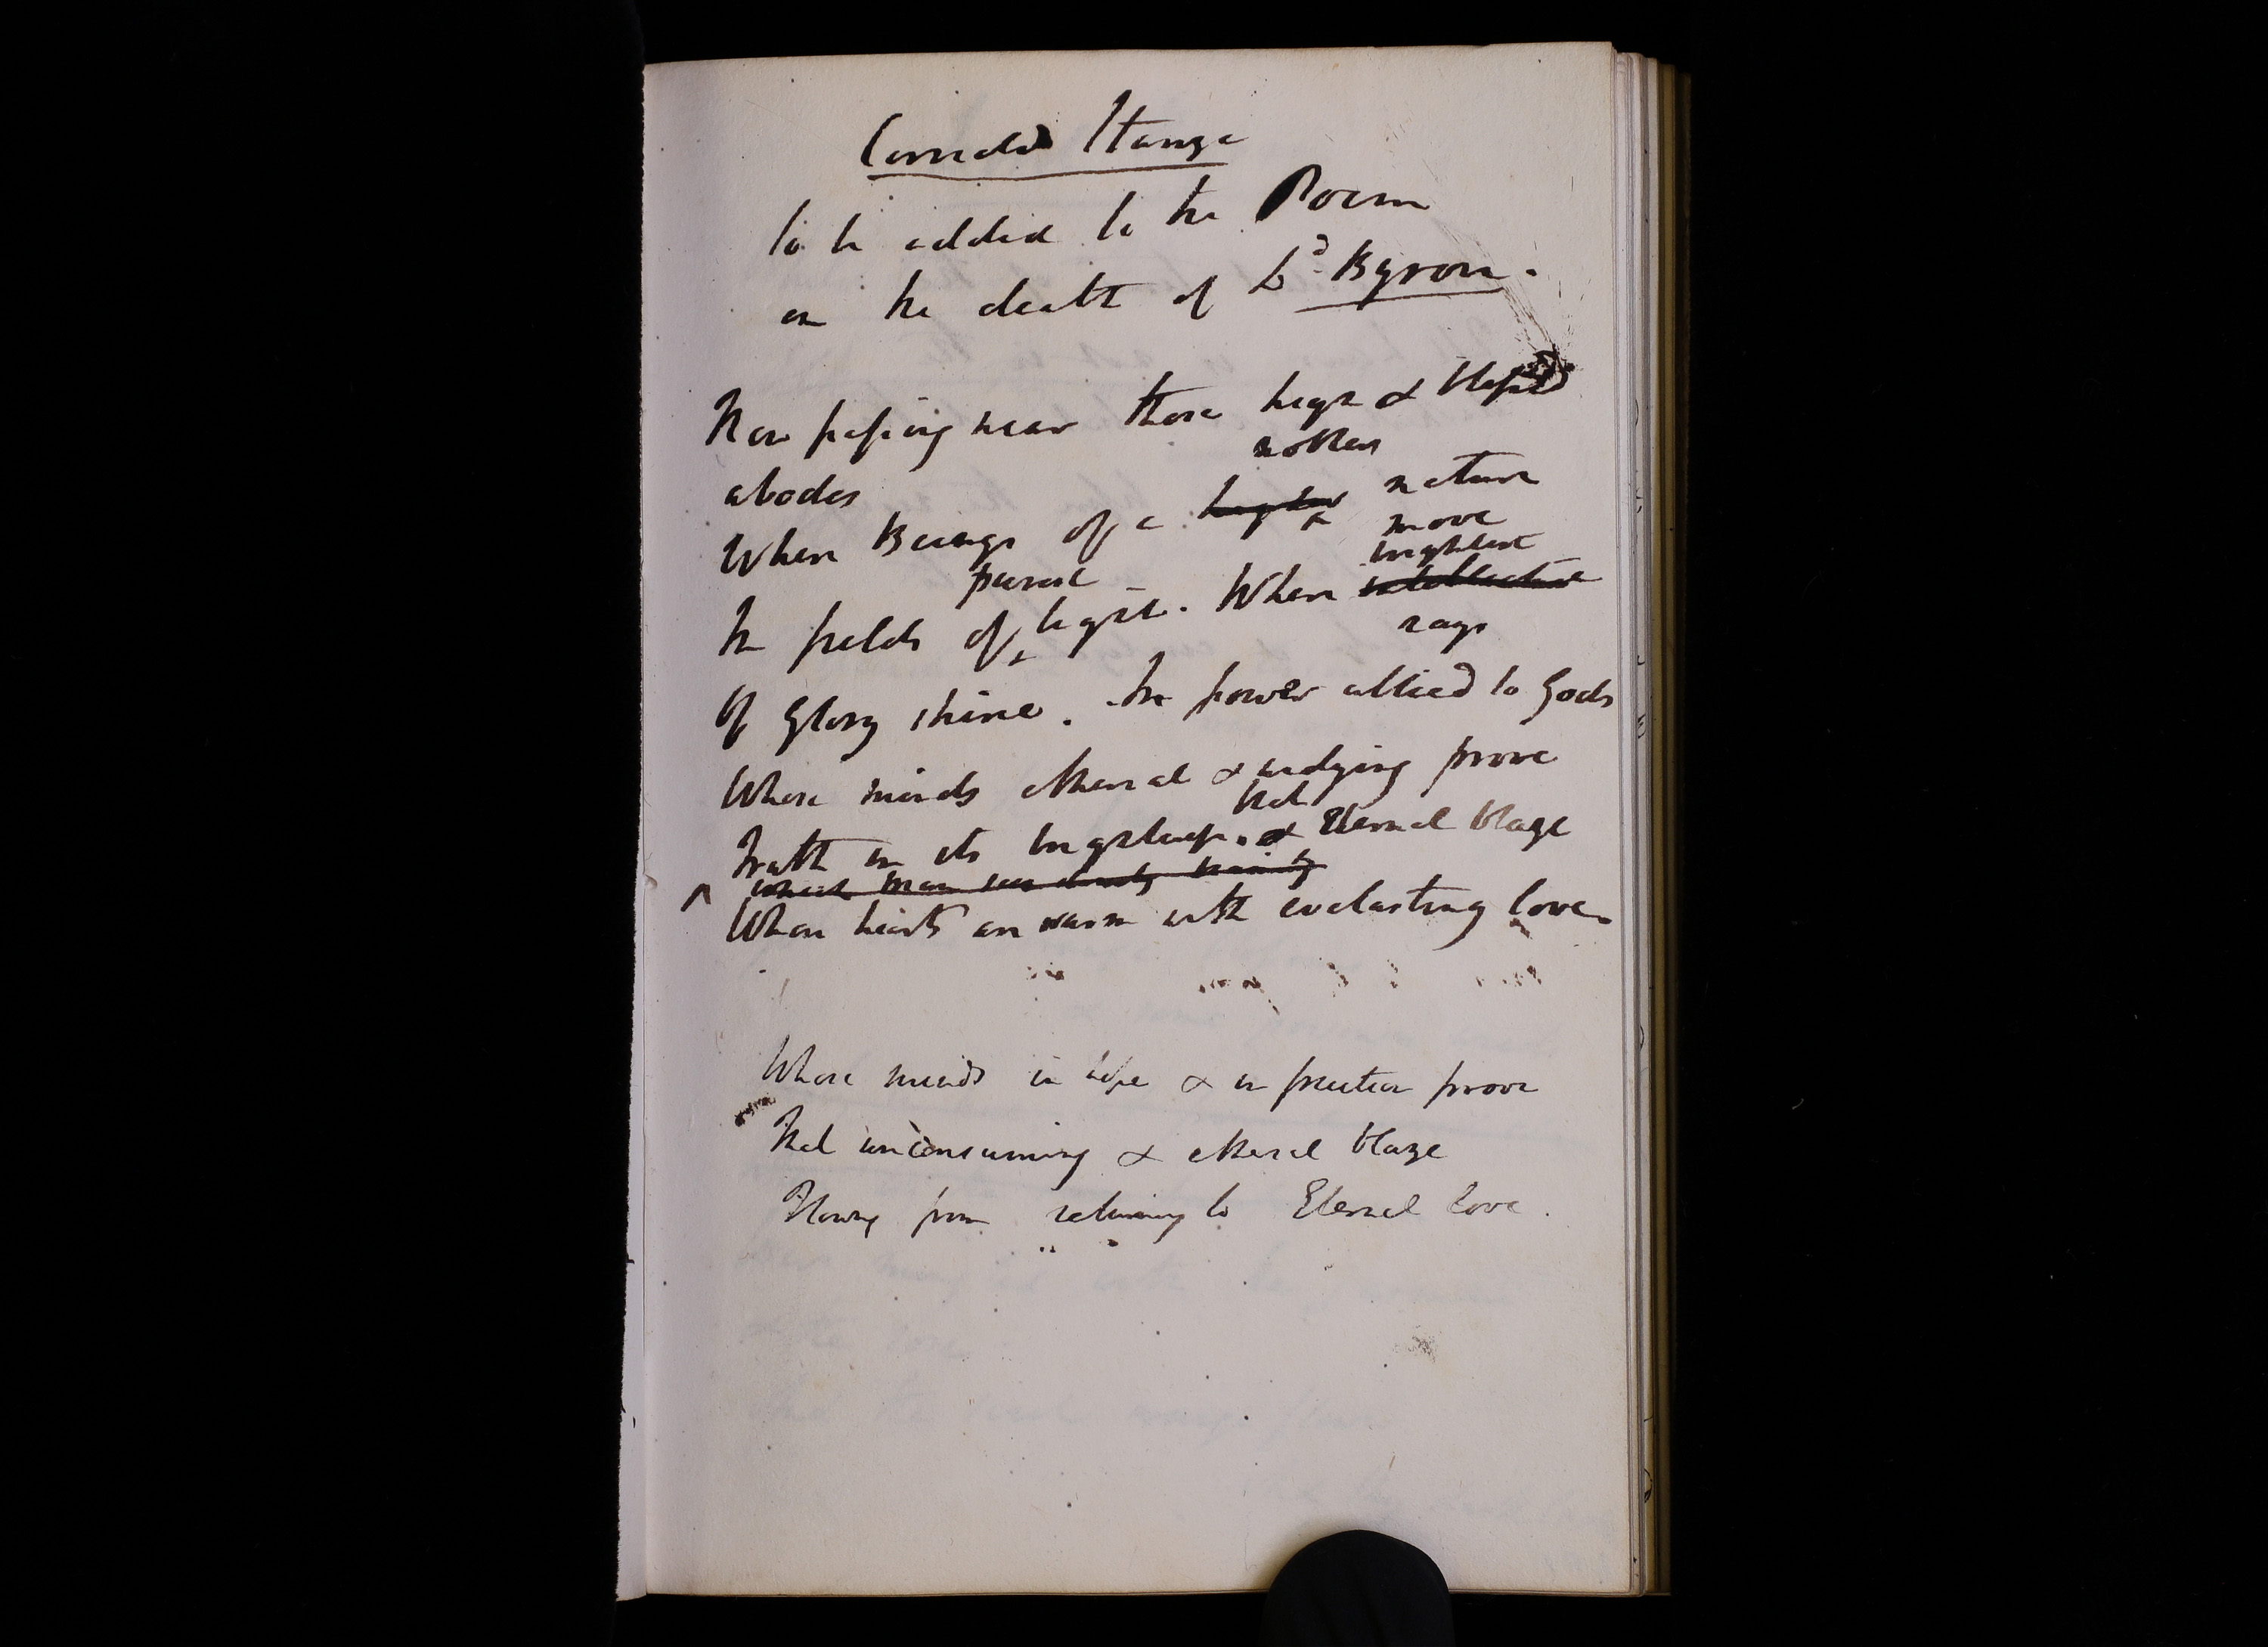 Corrected Stanza
to be added to the Poem
on the death of Ld. Byron.
Now passing near those high & blessed
abodes
nobler
Where Beings of a higher nature
move
purest brightest
In fields of light. Where intellectual
rays
Of Glory shine. In power allied to Gods
Whose minds etherial & undying prove
that
Truth in its brightness. & Eternal blaze
Whose hearts are warm with everlasting love.
Whose minds in hope & in fruition prove
That unconsuming & etherial blaze
Flowing from returning to Eternal love.